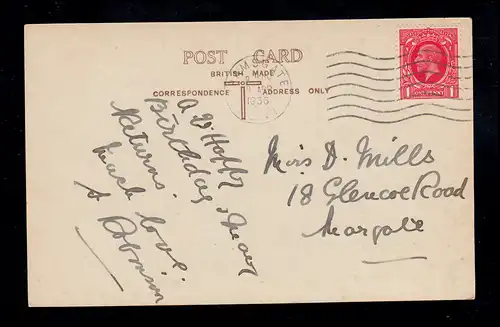 POST CARD
BRITISH MADE
CORRESPONDENCE ADDRESS ONLY
RAMSGATE
1936
ONE PENNY
1
A V Happy
Birthday & Many
Returns.
much love.
A Robinson
Miss D. Mills
18 Glencoe Road
Margate